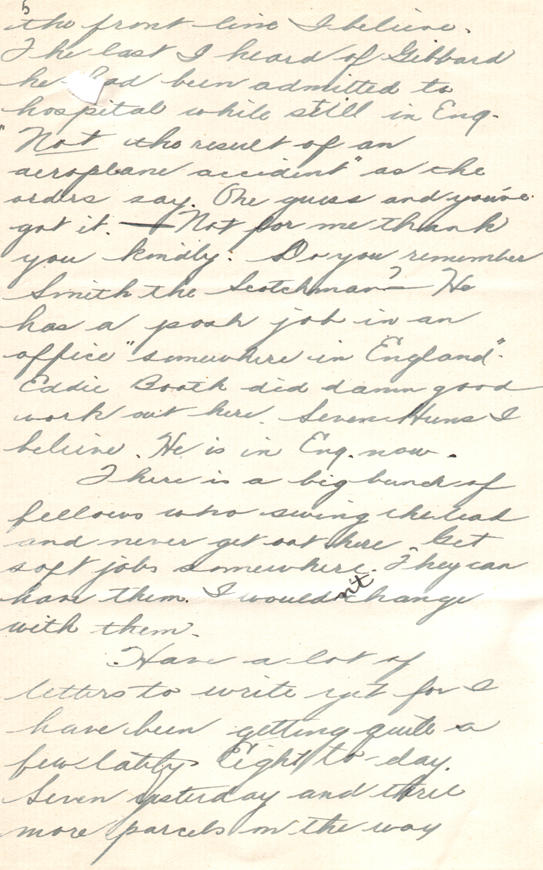 5
the front line I believe.
The last I heard of Gibbard
he had been admitted to
hospital while still in Eng.
"Not the result of an
aeroplane accident" as the
orders say. One guess and you've
got it. — Not for me thank
you kindly. Do you remember
Smith the Scotchman? — He
has a posh job in an
office "somewhere in England".
Eddie Booth did damn good
work out here. Seven Huns I
believe. He is in Eng. now.
There is a big bunch of
fellows who swing the lead
and never get out here. Get
soft jobs somewhere. They can
have them. I wouldn't change
with them.
Have a lot of
letters to write yet for I
have been getting quite a
few lately. Eight to-day.
Seven yesterday and three
more parcels on the way